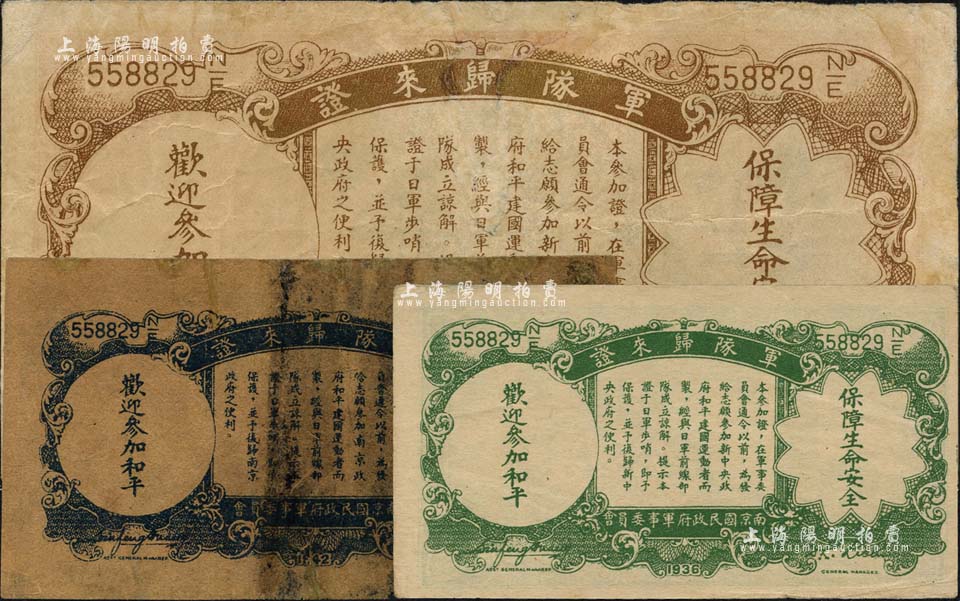 上海陽明拍賣
www.yangmingauction.com
558829 N/E
軍隊歸來證
558829 N/E
保障生命
本參加證，在軍事
員會通令以前
給志願參加新
府和平建國運
製，經與日軍
隊成立諒解。
證于日軍步哨
保護，並予復
央政府之便利
歡迎參加
558829 N/E
隊歸來證
員會通令以前，為發
給志願參加南京政
府和平建國運動者而
製，經與日軍前線部
隊成立諒解。提示本
證于日軍步哨，即予
保護，並予復歸南京
政府之便利。
歡迎參加和平
南京國民政府軍事委員會
ASST GENERAL MANAGER
上海陽明拍賣
www.yangmingauction.com
558829 N/E
軍隊歸來證
558829 N/E
保障生命安全
本參加證，在軍事委
員會通令以前，為發
給志願參加新中央政
府和平建國運動者而
製，經與日軍前線部
隊成立諒解。提示本
證于日軍步哨，即予
保護，並予復歸新中
央政府之便利。
歡迎參加和平
南京國民政府軍事委員會
ASST GENERAL MANAGER
1936
GENERAL MANAGER
上海陽明拍賣
www.yangmingauction.com
上海陽明拍賣
www.yangmingauction.com